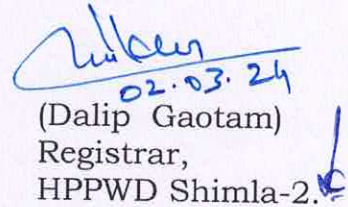 02.03.24
(Dalip Gaotam)
Registrar,
HPPWD Shimla-2.